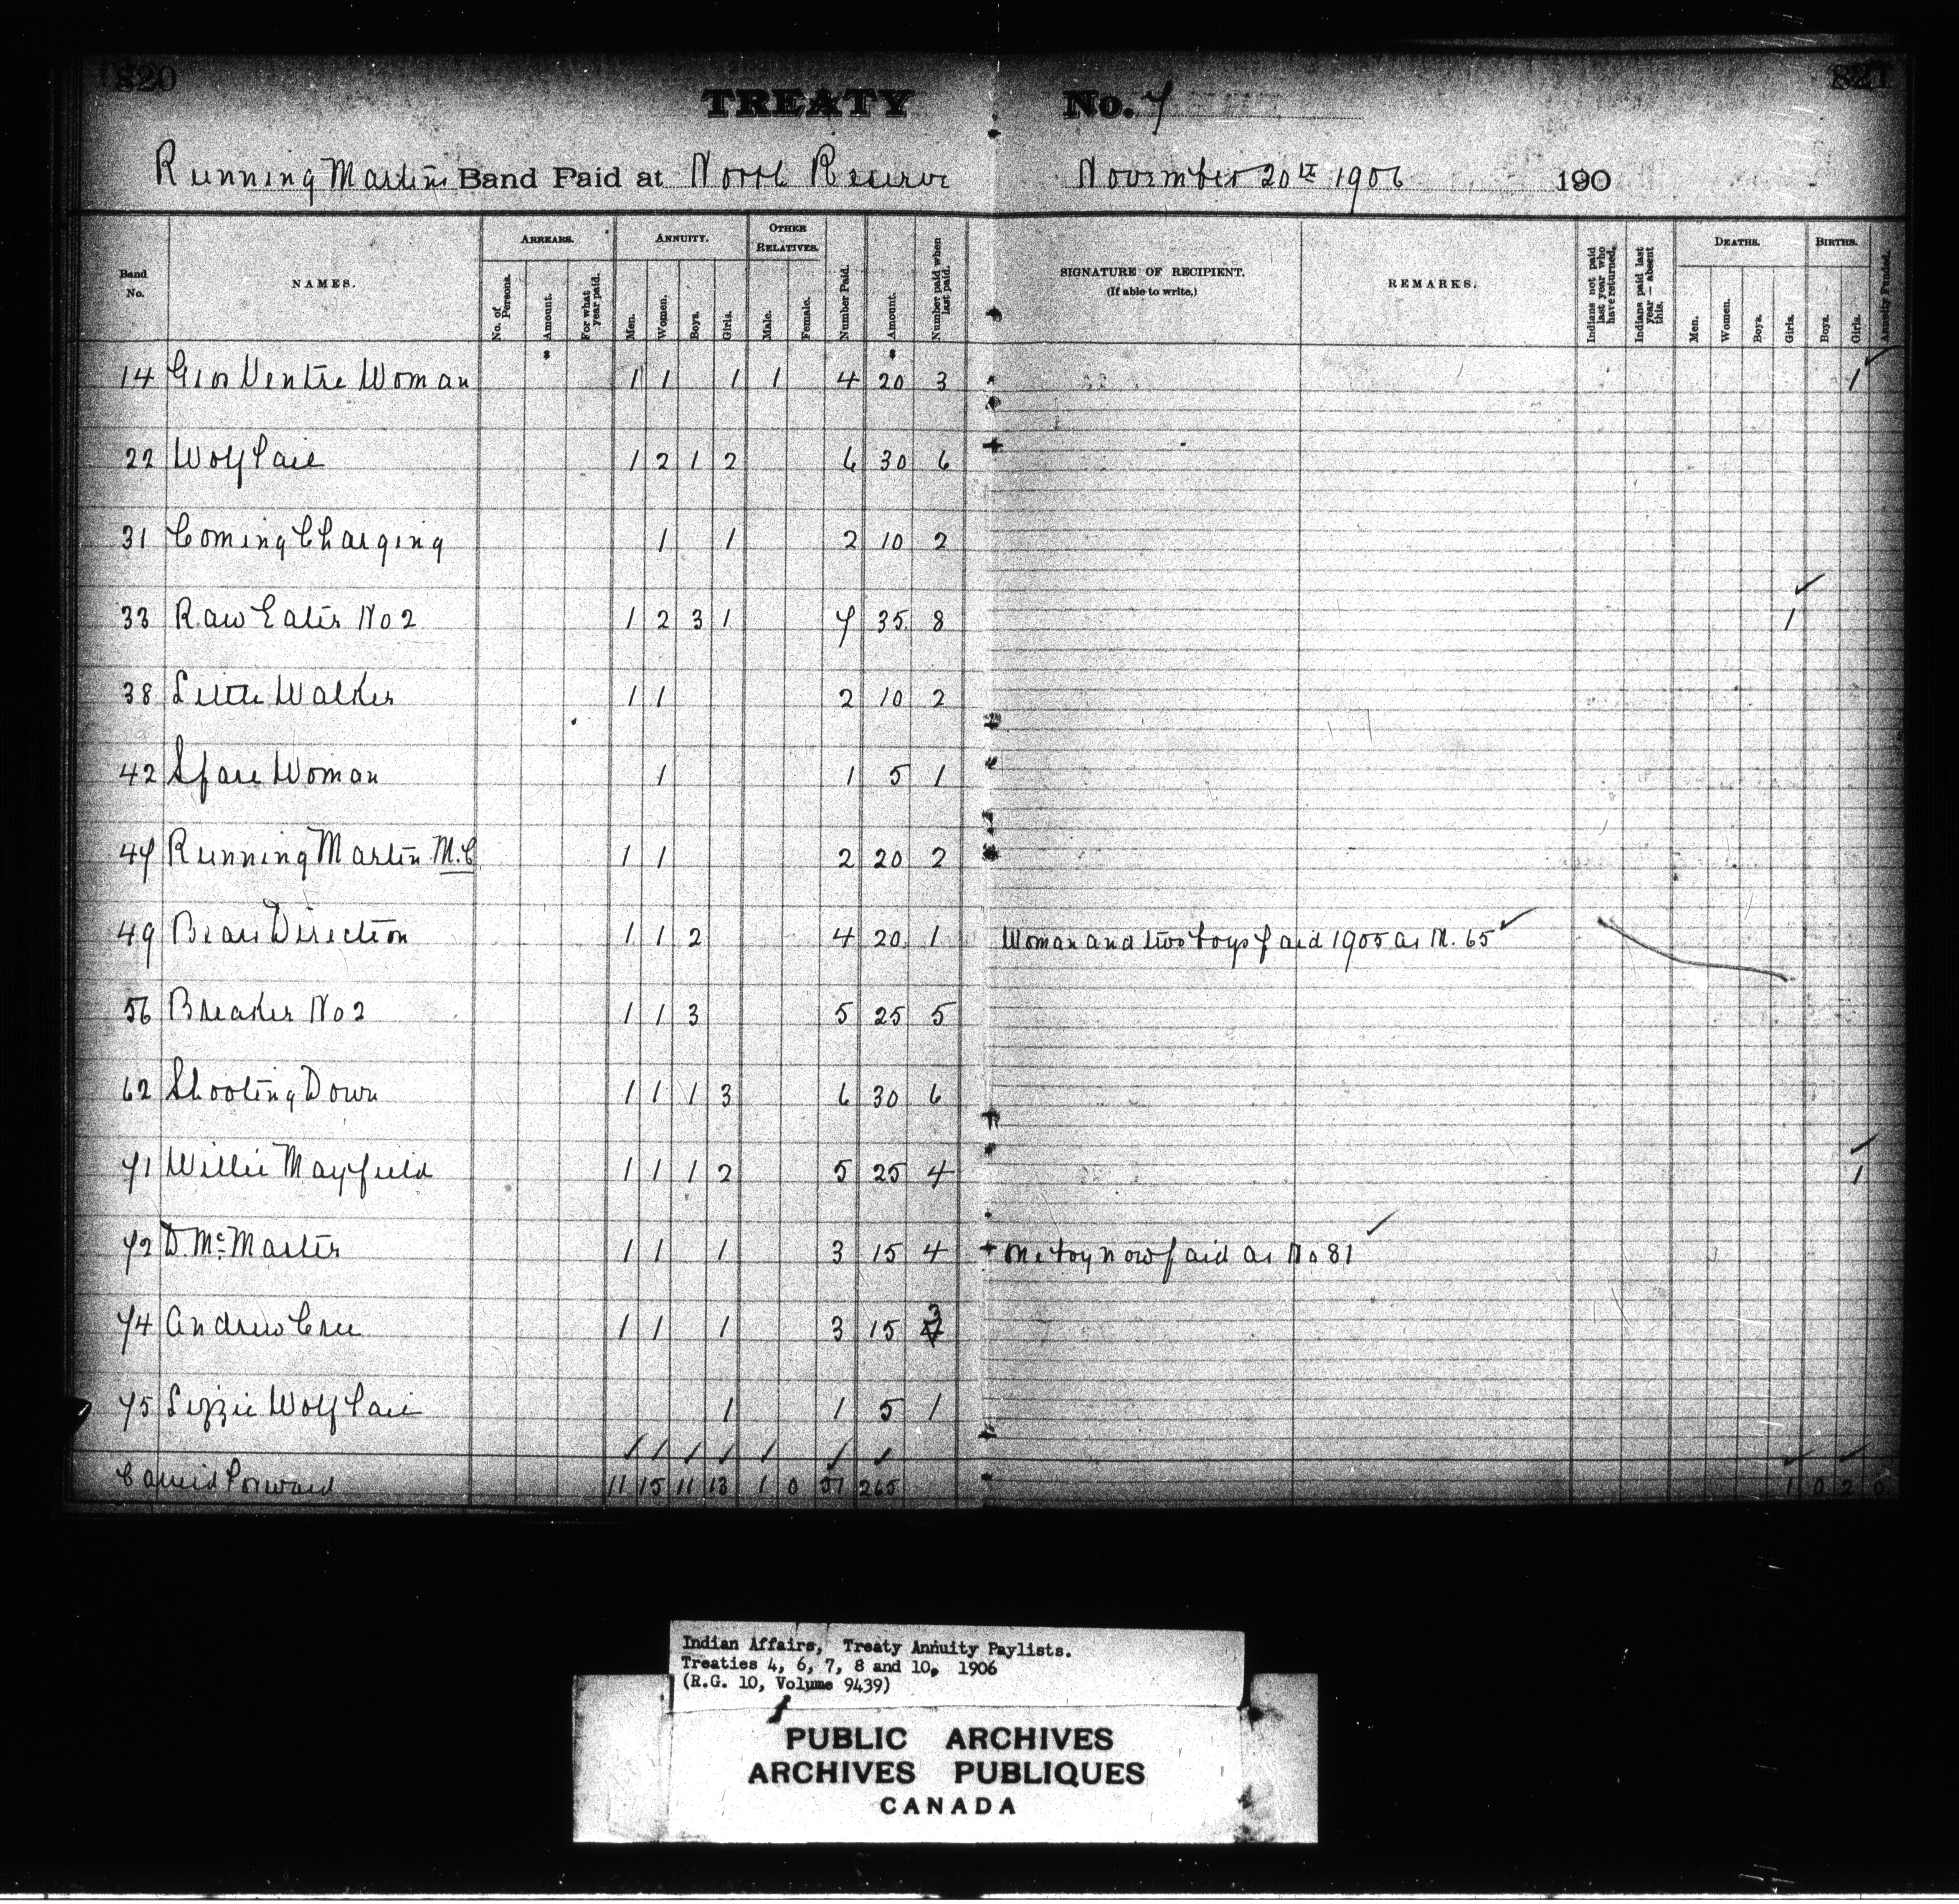 820
821
TREATY No. 7
Running Martins Band Paid at North Reserve November 20th 1906 190
Band No. NAMES. ARREARS. ANNUITY. OTHER RELATIVES. Number Paid. Amount. Number paid when last paid. SIGNATURE OF RECIPIENT. (If able to write,) REMARKS. Indians not paid last year who have returned. Indians paid last year — absent this. DEATHS. BIRTHS. Annuity Funded.
No. of Persons. Amount. For what year paid. Men. Women. Boys. Girls. Male. Female. Men. Women. Boys. Girls. Boys. Girls.
14 Gros Ventre Woman 1 1 1 1 4 20 3 1
22 Wolf Tail 1 2 1 2 6 30 6
31 Coming Charging 1 1 2 10 2
33 Raw Eater No 2 1 2 3 1 7 35 8 1
38 Little Walker 1 1 2 10 2
42 Spare Woman 1 1 5 1
47 Running Martin M.C 1 1 2 20 2
49 Bear Direction 1 1 2 4 20 1 Woman and two boys paid 1905 as N. 65
56 Breaker No 2 1 1 3 5 25 5
62 Shooting Down 1 1 1 3 6 30 6
71 Willie Mayfield 1 1 1 2 5 25 4 1
72 D. McMaster 1 1 1 3 15 4 One boy now paid as No 81
74 Andrew Cree 1 1 1 3 15 3
75 Lizzie Wolf Tail 1 1 5 1
Carried Forward 11 15 11 13 1 0 51 265 1 0 2 0
Indian Affairs, Treaty Annuity Paylists.
Treaties 4, 6, 7, 8 and 10, 1906
(R.G. 10, Volume 9439)
PUBLIC ARCHIVES
ARCHIVES PUBLIQUES
CANADA